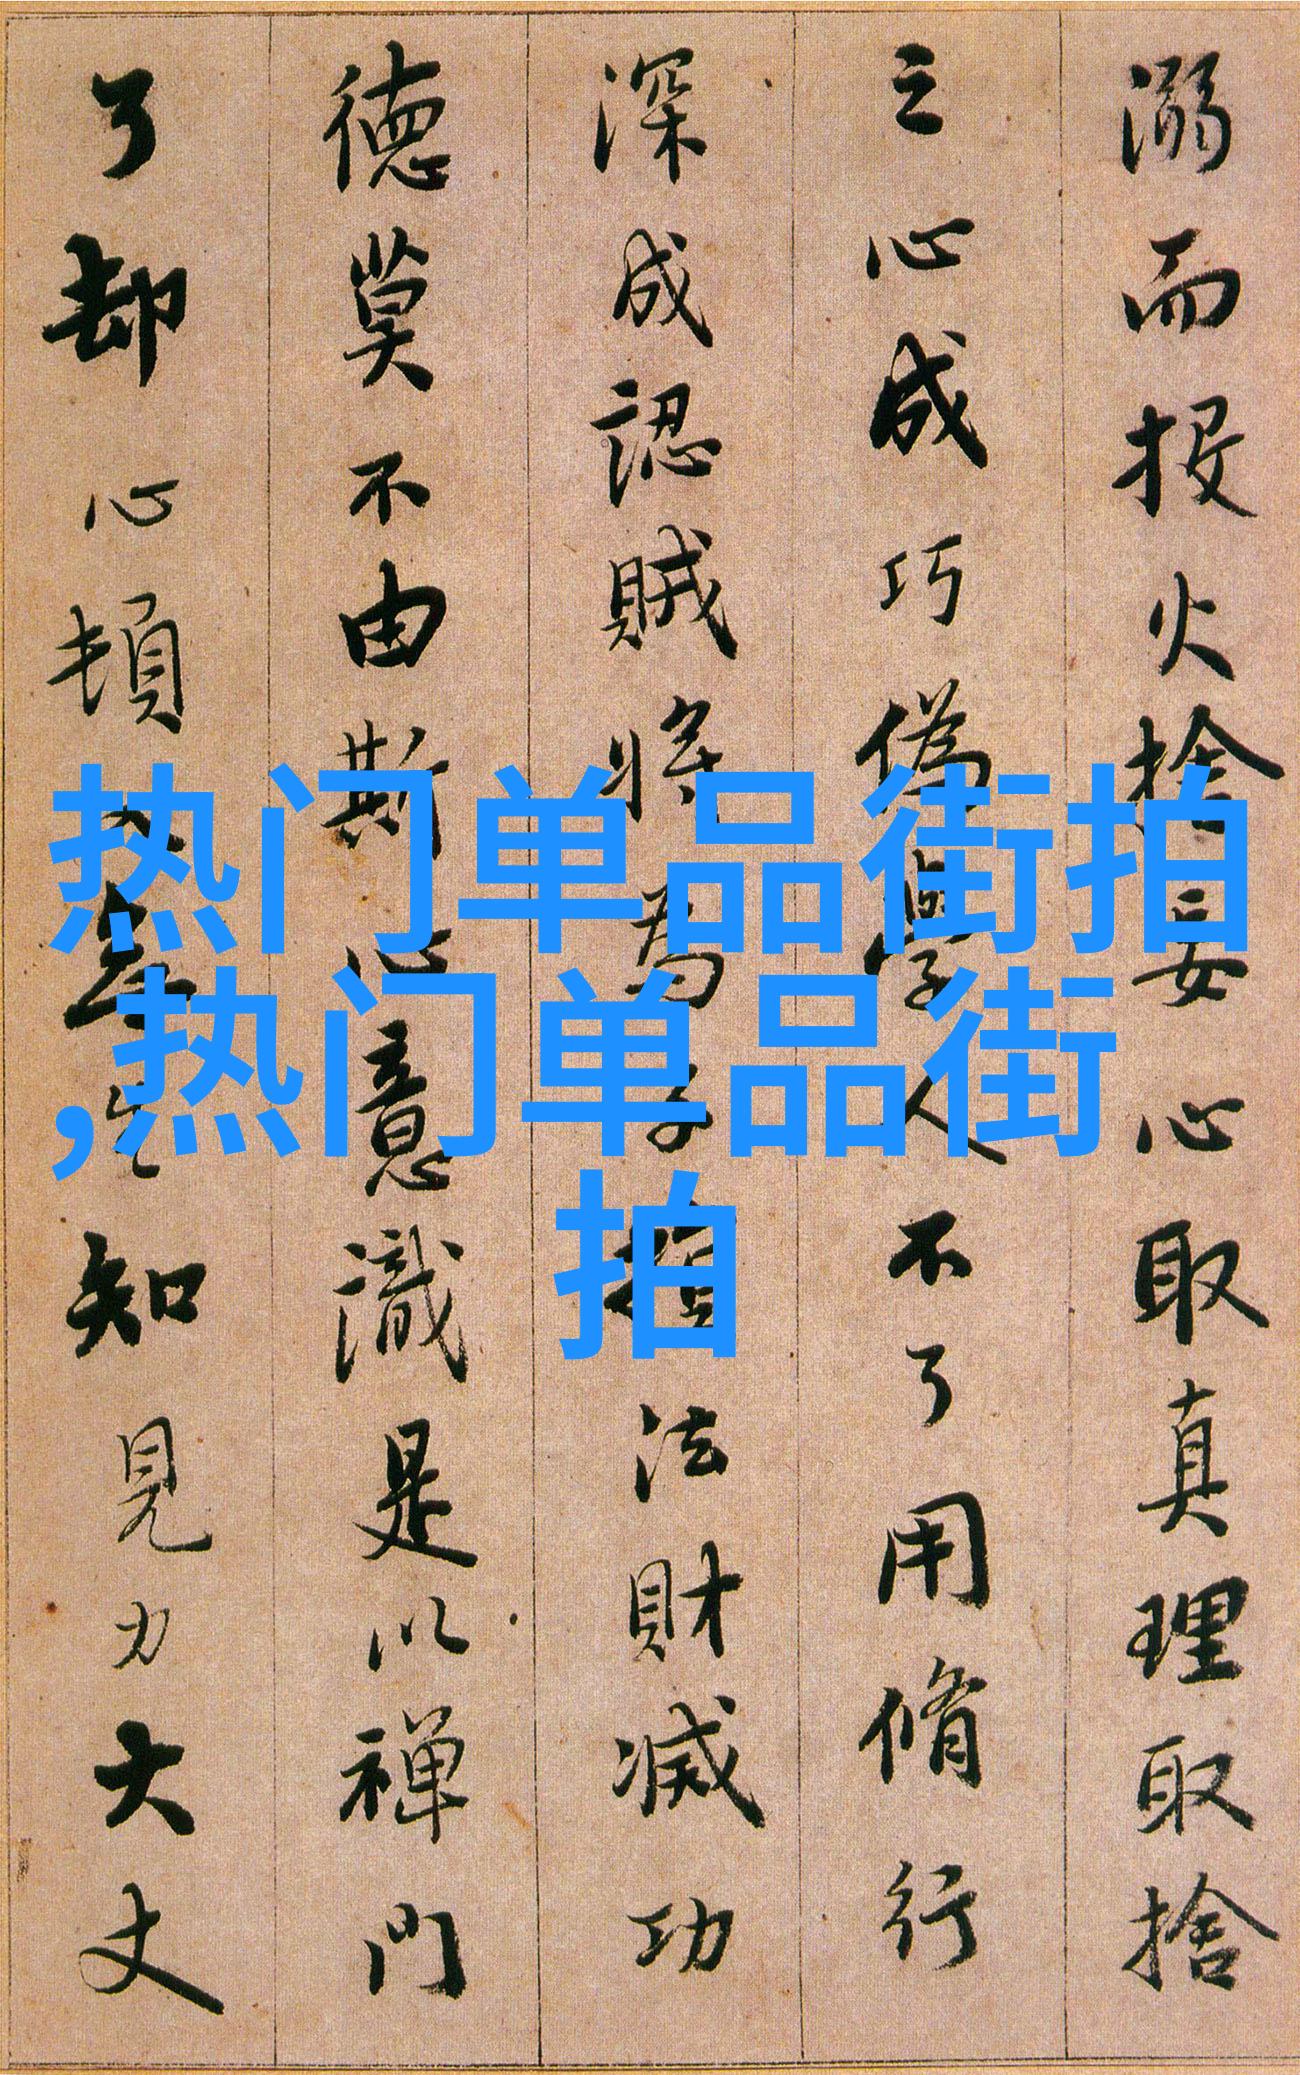 溺而投火捨妄心取真理取捨
之心成巧偽學人不了用脩行
深成認賊將為子損法財滅功
德莫不由斯心意識是以禪門
了却心頓入無生知見力大丈
热门单品街拍
,热门单品街
拍